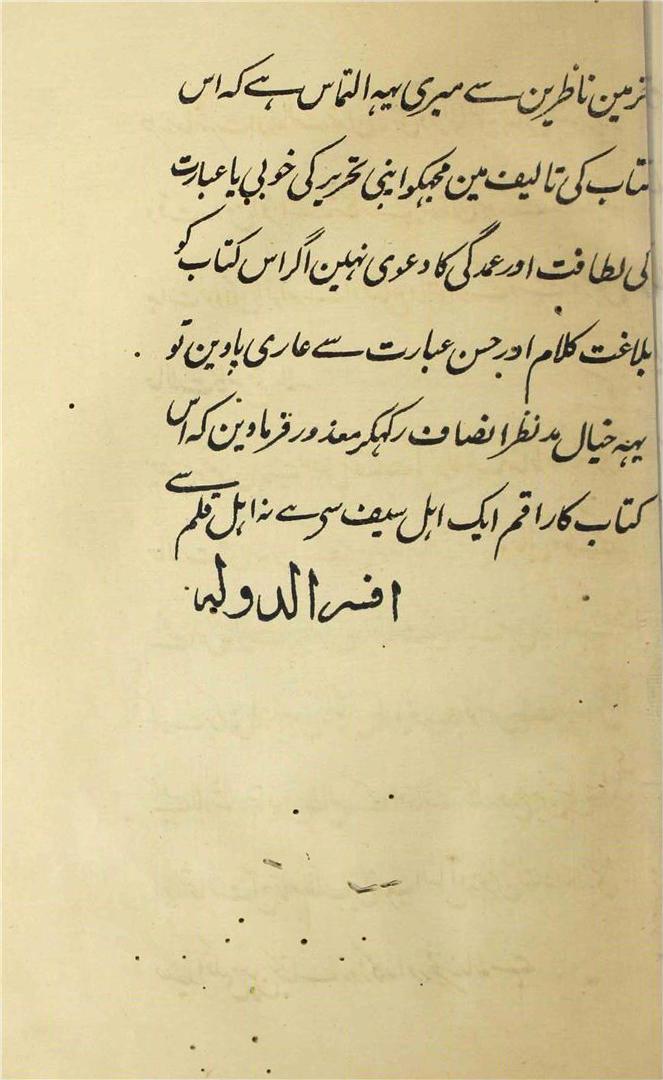 خرمین ناظرین سے میری یہہ التماس ہے کہ اس
کتاب کی تالیف مین مجہکو اپنی تحریر کی خوبی یا عبارت
کی لطافت اور عمدگی کا دعوی نہین اگر اس کتاب کو
بلاغت کلام اور حسن عبارت سے عاری پاوین تو
یہہ خیال مد نظر انصاف رکہکر معذور فرماوین کہ اس
کتاب کا راقم ایک اہل سیف سے ہے نہ اہل قلم سے
افسر الدولہ